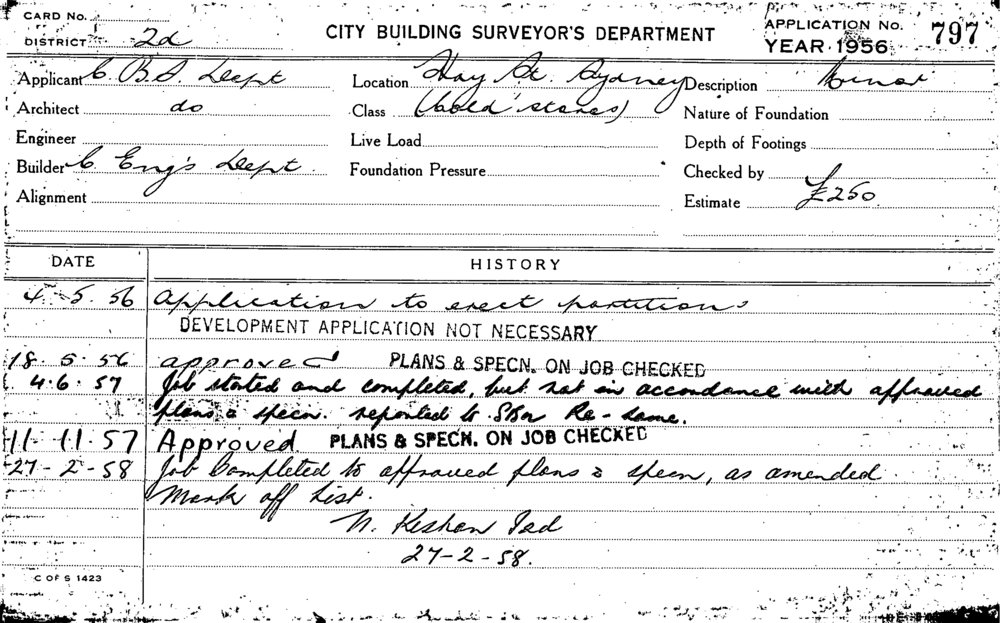 CARD No.
DISTRICT 2d
CITY BUILDING SURVEYOR'S DEPARTMENT
APPLICATION No. 797
YEAR 1956
Applicant C. B. S. Dept
Location Hay St. Sydney
Description Minor
Architect do
Class (Cold stores)
Nature of Foundation
Engineer
Live Load
Depth of Footings
Builder C. Eng's Dept
Foundation Pressure
Checked by
Alignment
Estimate £250
DATE HISTORY
4. 5. 56 Application to erect partitions
DEVELOPMENT APPLICATION NOT NECESSARY
18. 5. 56 approved PLANS & SPECN. ON JOB CHECKED
4.6.57 Job started and completed, but not in accordance with approved
plans & specn. reported to Re-same.
11-11-57 Approved. PLANS & SPECN. ON JOB CHECKED
27-2-58 Job Completed to approved plans & specn, as amended
Mark off List.
27-2-58.
C OF S 1423